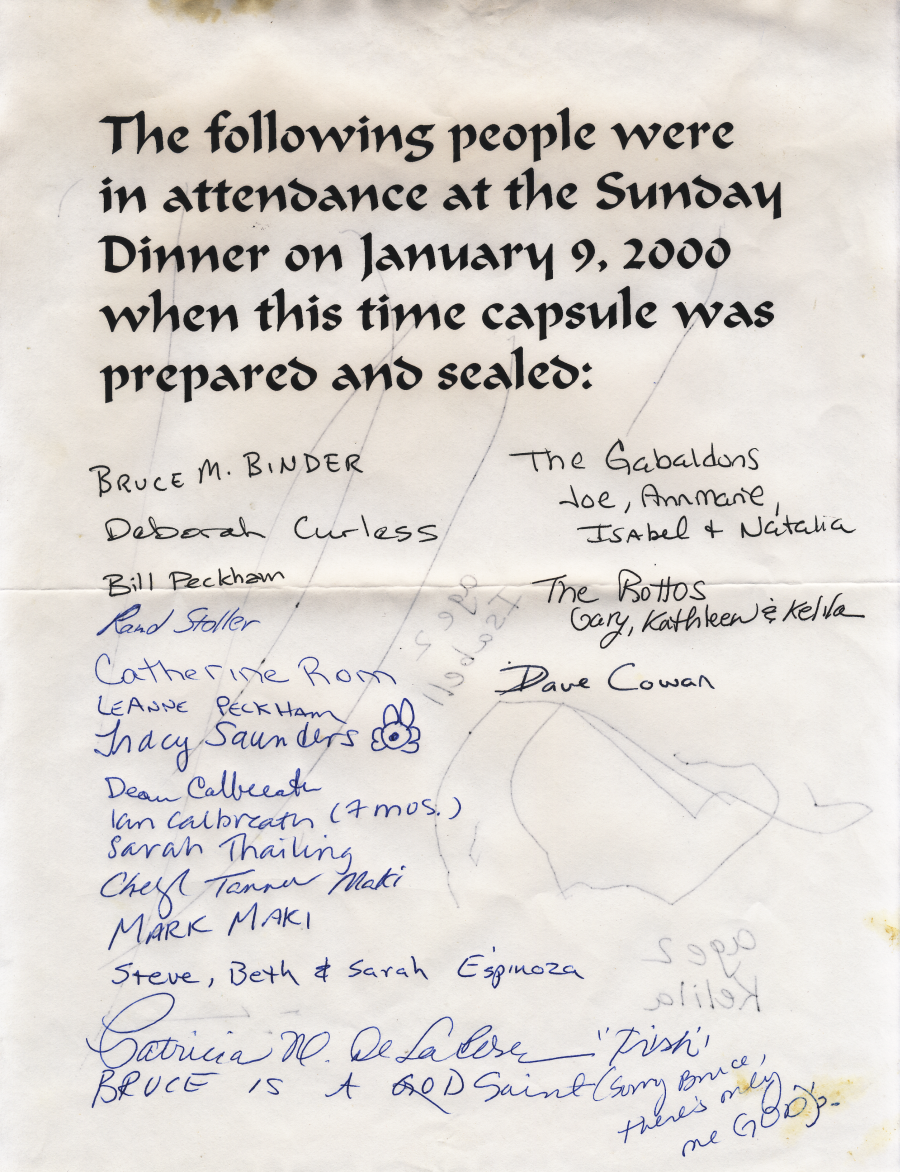 The following people were
in attendance at the Sunday
Dinner on January 9, 2000
when this time capsule was
prepared and sealed:
BRUCE M. BINDER
Deborah Curless
Bill Peckham
Rand Stoller
Catherine Rom
LEANNE PECKHAM
Tracy Saunders
Dean Calbreath
Ian Calbreath (7 mos.)
Sarah Thailing
Cheryl Tanner Maki
MARK MAKI
Steve, Beth & Sarah Espinoza
The Gabaldons
Joe, Annmarie,
Isabel & Natalia
The Bottos
Gary, Kathleen & Kelila
Dave Cowan
Isabell
age 2
age 2
Kelila
Patricia M. De La Rosa "Trish"
BRUCE IS A GOD Saint (Sorry Bruce,
there's only
me GOD)